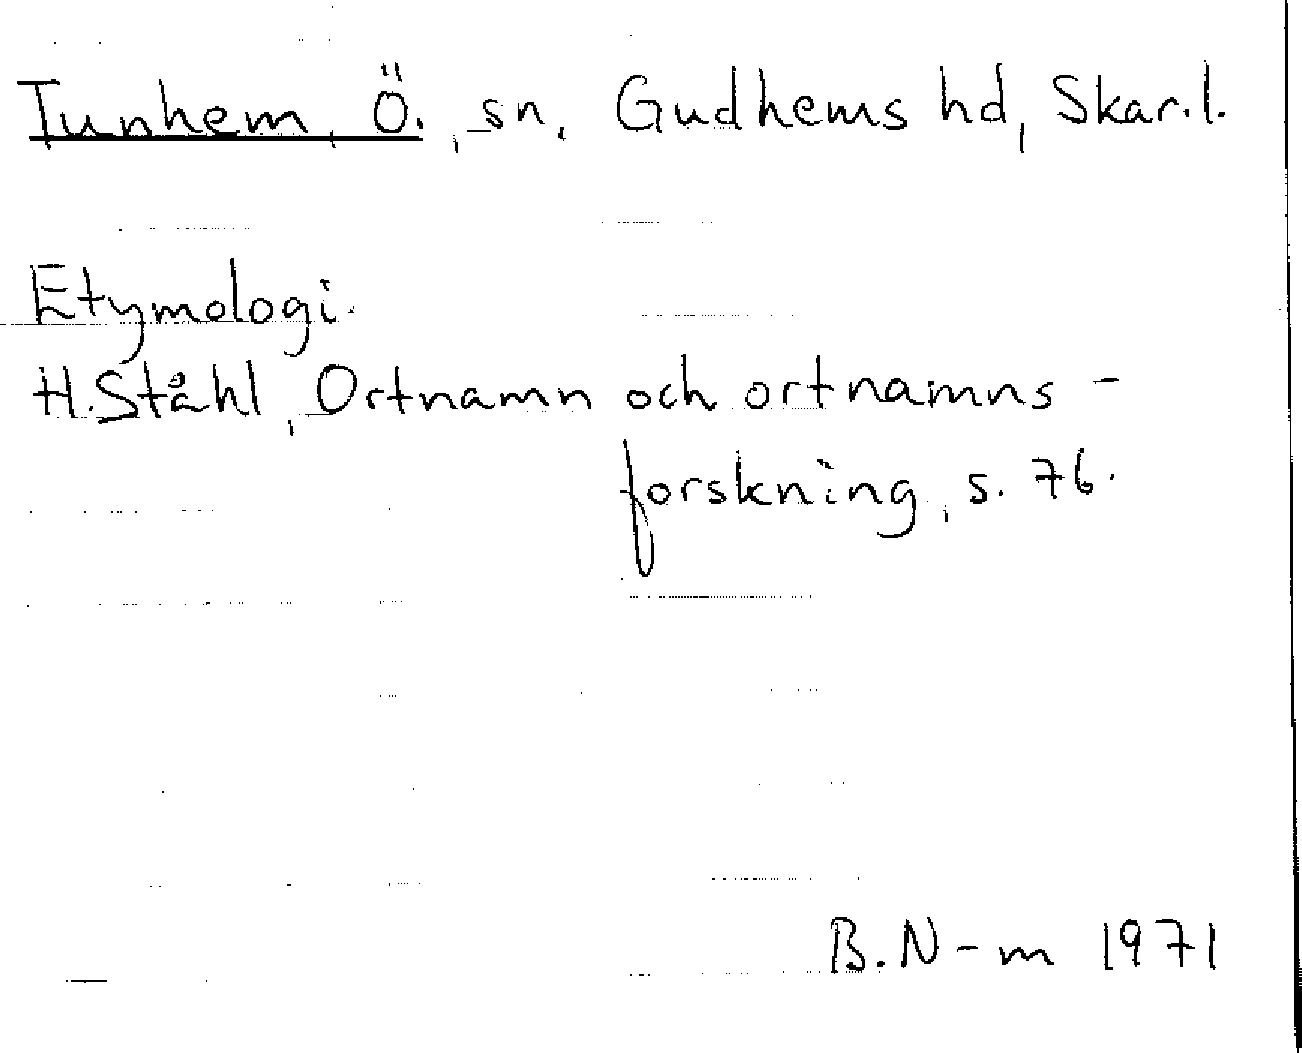 Tunhem, Ö., sn, Gudhems hd, Skar.l.
Etymologi.
H. Ståhl, Ortnamn och ortnamns-
forskning, s. 76.
B. N-m 1971